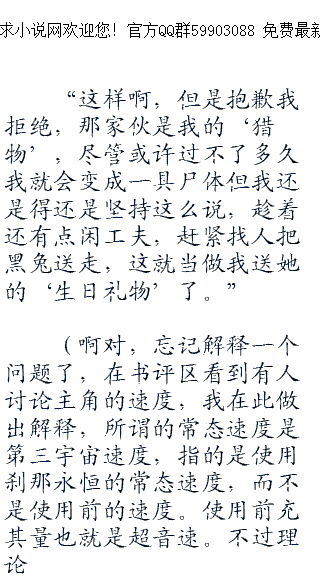 求小说网欢迎您！官方QQ群59903088 免费最新
“这样啊，但是抱歉我
拒绝，那家伙是我的‘猎
物’，尽管或许过不了多久
我就会变成一具尸体但我还
是得还是坚持这么说，趁着
还有点闲工夫，赶紧找人把
黑兔送走，这就当做我送她
的‘生日礼物’了。”
（啊对，忘记解释一个
问题了，在书评区看到有人
讨论主角的速度，我在此做
出解释，所谓的常态速度是
第三宇宙速度，指的是使用
刹那永恒的常态速度，而不
是使用前的速度。使用前充
其量也就是超音速。不过理
论